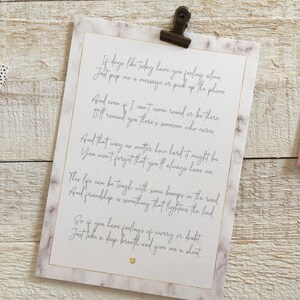 If days like today leave you feeling alone
Just pop me a message or pick up the phone
And even if I can't come round or be there
I'll remind you there's someone who cares
And that way no matter how hard it might be
You won't forget that you'll always have me
This life can be tough with some bumps in the road
And friendship is something that lightens the load
So if you have feelings of worry or doubt
Just take a deep breath and give me a shout